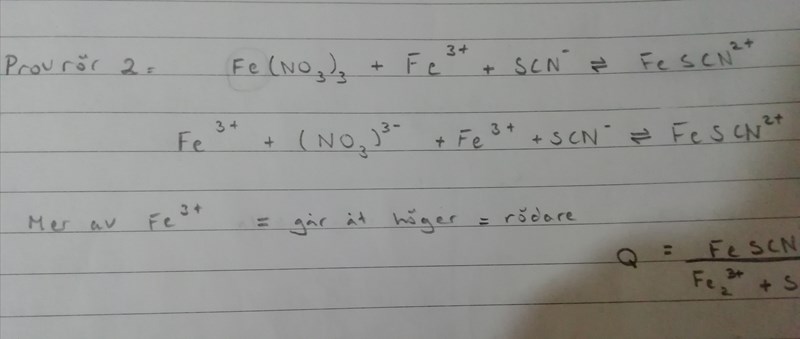 Provrör 2 = Fe(NO₃)₃ + Fe³⁺ + SCN⁻ ⇌ FeSCN²⁺
Fe³⁺ + (NO₃)³⁻ + Fe³⁺ + SCN⁻ ⇌ FeSCN²⁺
Mer av Fe³⁺ = går åt höger = rödare
Q = FeSCN
Fe₂³⁺ + S